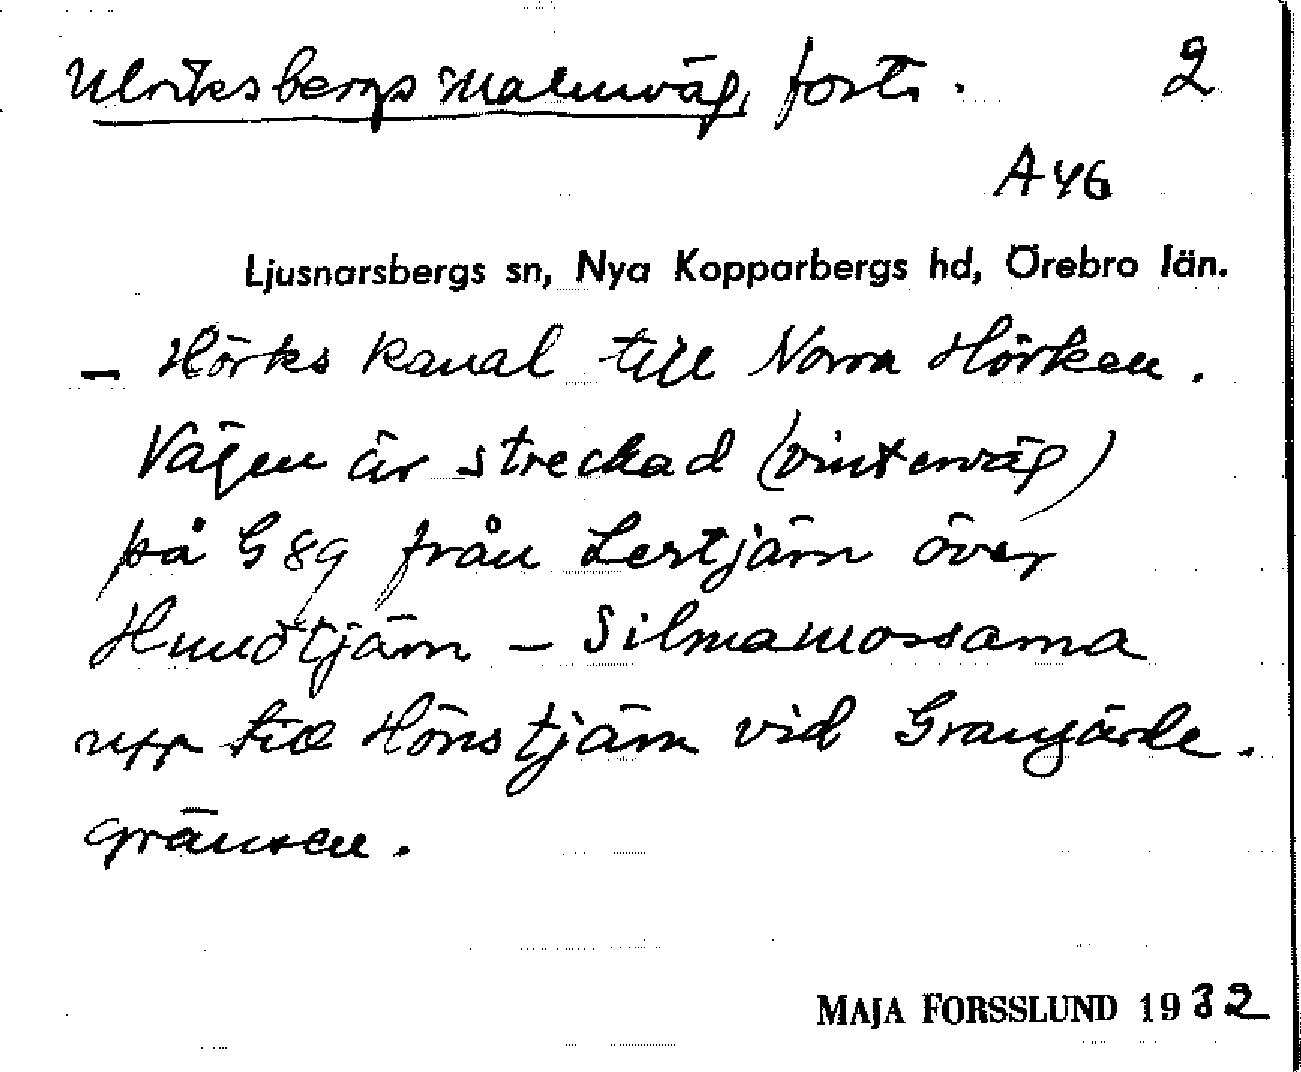 Ulriksbergs Malmväg, forts. 2
A 46
Ljusnarsbergs sn, Nya Kopparbergs hd, Örebro län.
– Hörks kanal till Norra Hörken.
Vägen är streckad (vinterväg)
på G 89 från Lertjärn över
Hundtjärn – Silmamossarna
upp till Hönstjärn vid Grangärde-
gränsen.
MAJA FORSSLUND 1932